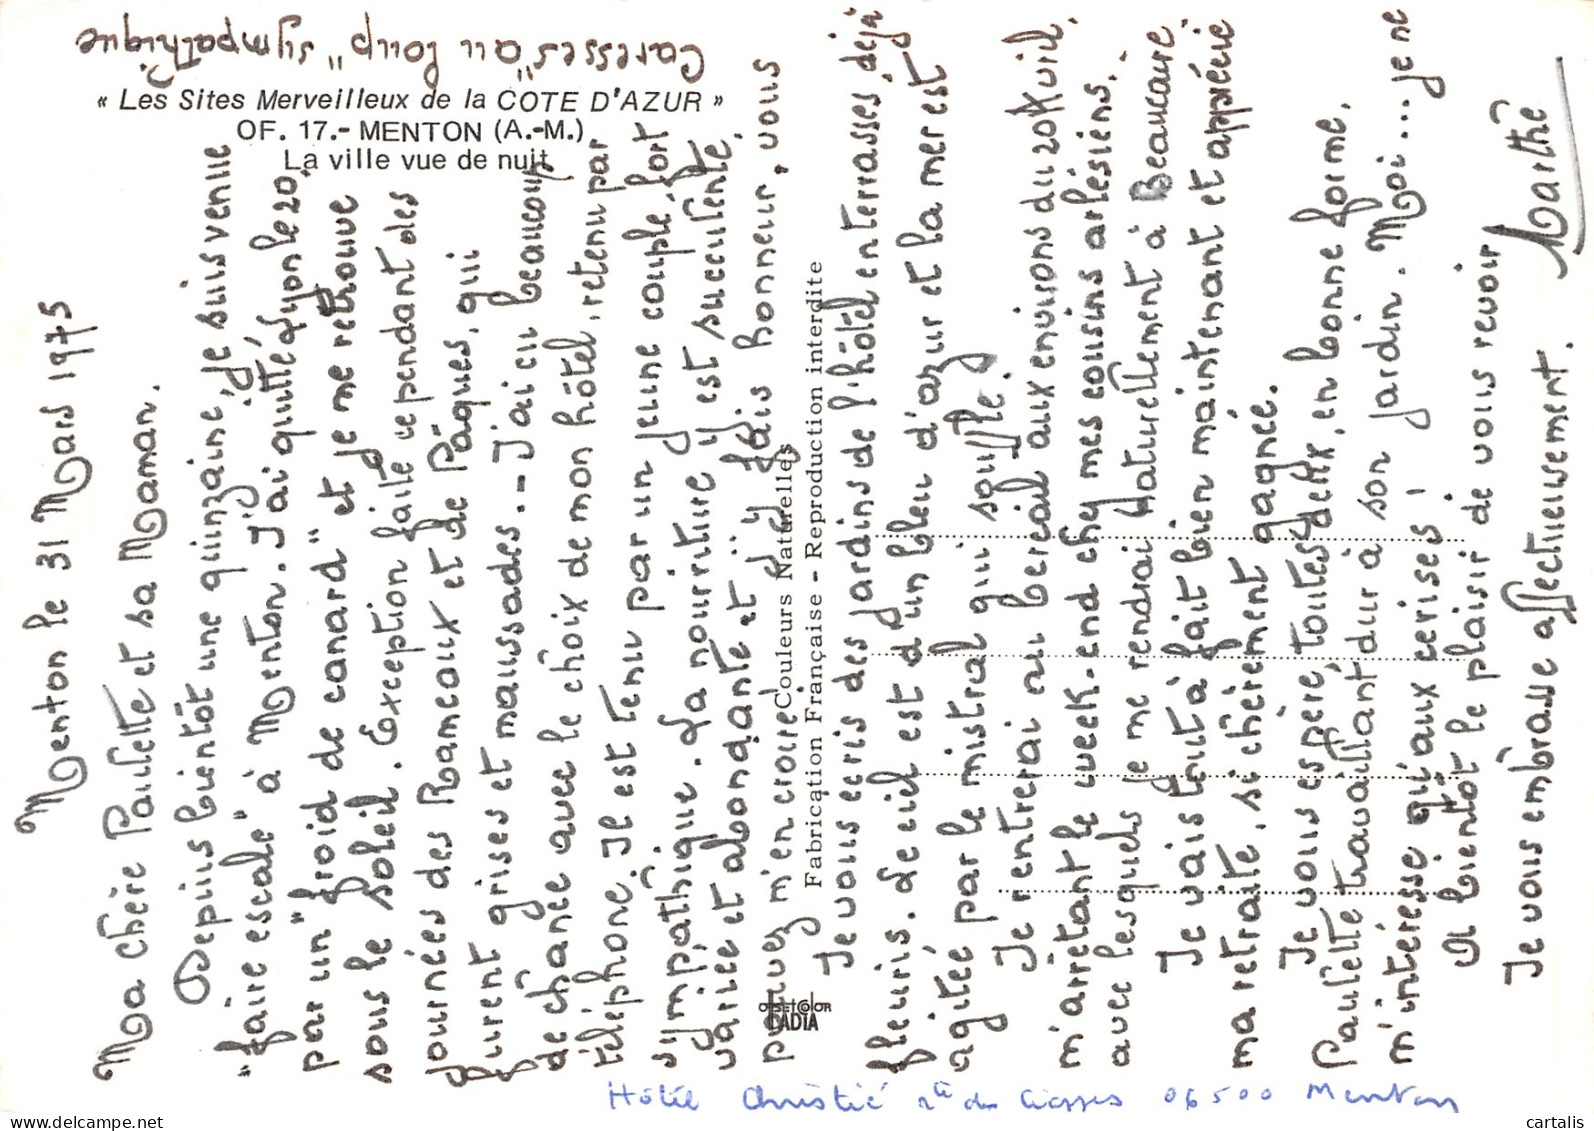 Caresses "au loup" sympathique
« Les Sites Merveilleux de la COTE D'AZUR »
OF. 17.- MENTON (A.-M.)
La ville vue de nuit
Menton le 31 Mars 1975
Ma chère Paulette et sa Maman.
Depuis bientôt une quinzaine, je suis venue
"faire escale" à Menton. J'ai quitté Lyon le 20,
par un "froid de canard" et je me retrouve
sous le soleil. Exception faite cependant des
journées des Rameaux et de Pâques, qui
furent grises et maussades.-- J'ai eu beaucoup
de chance avec le choix de mon hôtel, retenu par
téléphone. Il est tenu par un jeune couple, fort
sympathique. La nourriture y est succulente,
variée et abondante et j'y fais honneur, vous
pouvez m'en croire!
Je vous écris des jardins de l'hôtel en terrasses, déjà
fleuris. Le ciel est d'un bleu d'azur et la mer est
agitée par le mistral qui souffle.
Je rentrerai au bercail aux environs du 20 Avril,
m'arrêtant le week-end chez mes cousins arlésiens,
avec lesquels je me rendrai naturellement à Beaucaire
Je vais tout à fait bien maintenant et apprécie
ma retraite, si chèrement gagnée.
Je vous espère, toutes deux, en bonne forme,
Paulette travaillant dur à son jardin. Moi... je ne
m'intéresse qu'aux cerises!
A bientôt le plaisir de vous revoir.
Je vous embrasse affectueusement.
Marthe
Couleurs Naturelles
Fabrication Française - Reproduction interdite
OFFSETCOLOR
CADIA
Hôtel Christie rte des Ciappes 06500 Menton
cartalis.com